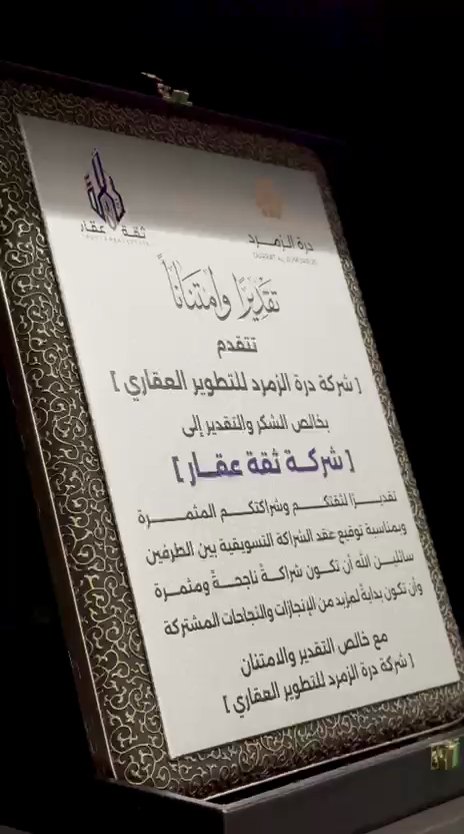 ثقة عقار
درة الزمرد
تقديرًا وامتنانًا
تتقدم
[ شركة درة الزمرد للتطوير العقاري ]
بخالص الشكر والتقدير إلى
[ شركة ثقة عقار ]
تقديرًا لثقتكم وشراكتكم المثمرة
وبمناسبة توقيع عقد الشراكة التسويقية بين الطرفين
سائلين الله أن تكون شراكةً ناجحةً ومثمرة
وأن تكون بدايةً لمزيد من الإنجازات والنجاحات المشتركة
مع خالص التقدير والامتنان
[ شركة درة الزمرد للتطوير العقاري ]